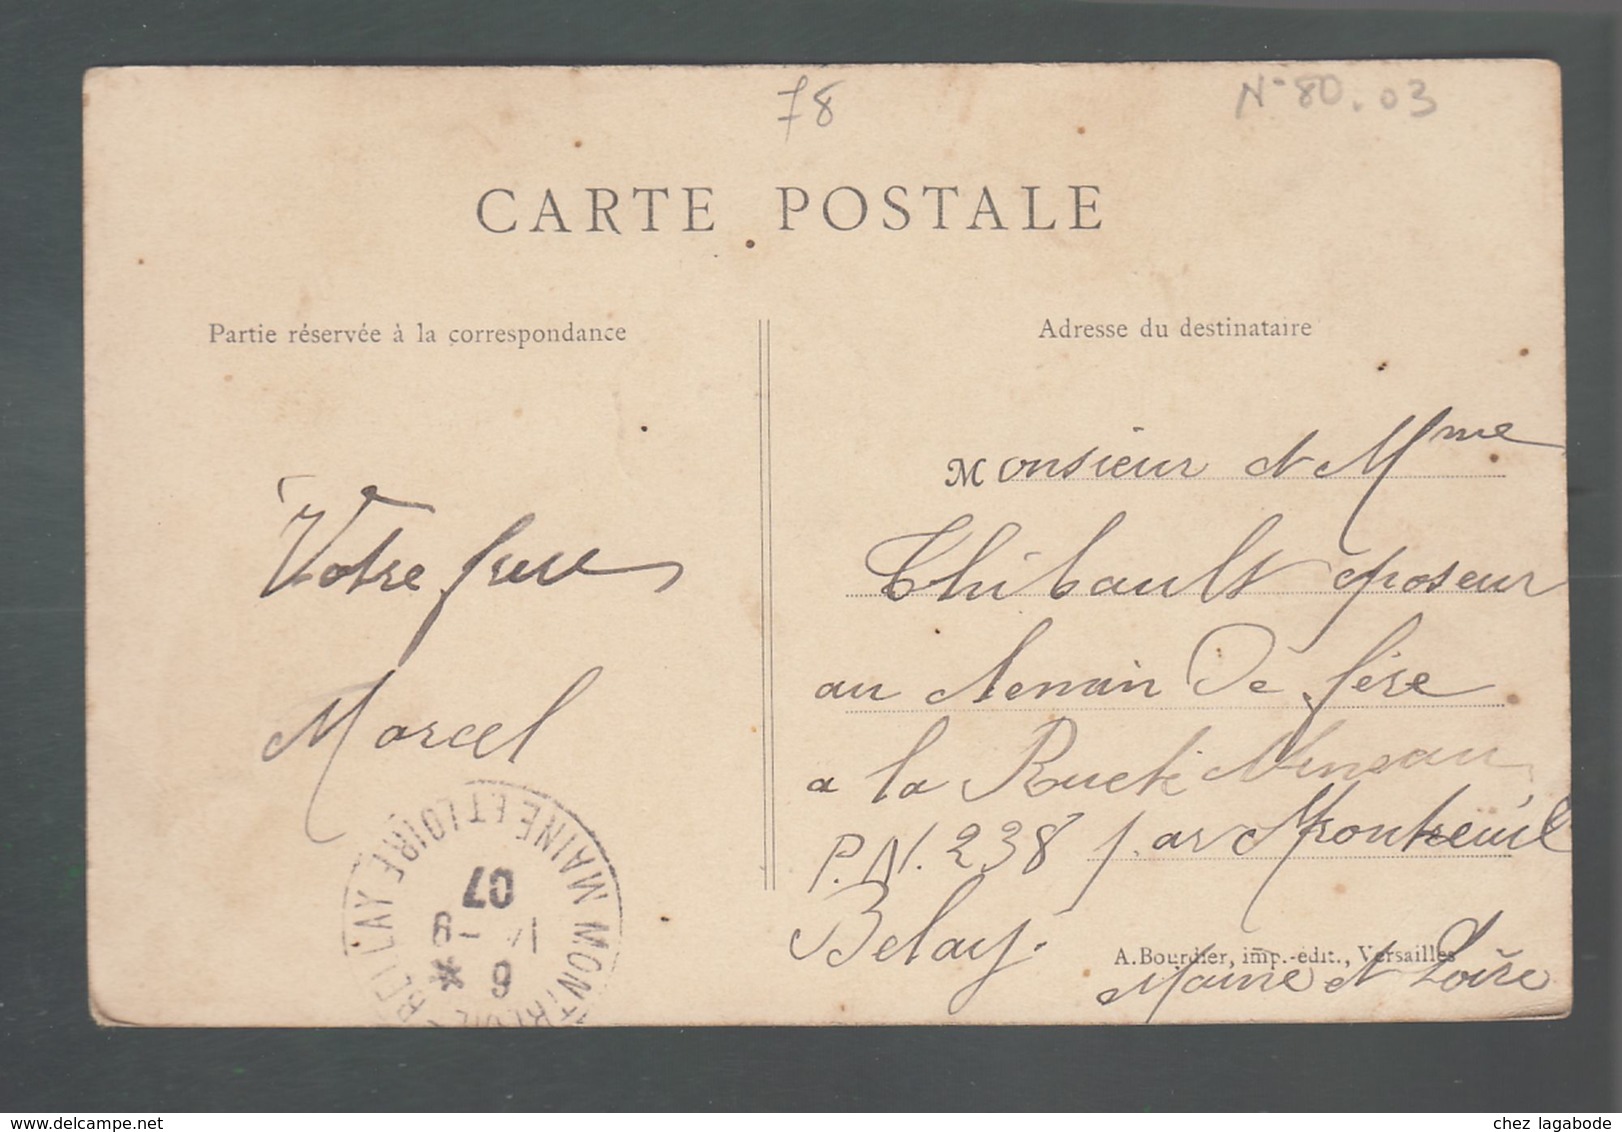 78
N° 80.03
CARTE POSTALE
Partie réservée à la correspondance
Adresse du destinataire
Votre frere
Marcel
Monsieur et Mme
Thibault poseur
au chemin de fére
a la Ruele
P.N. 238 par Montreuil
Belay.
Maine et Loire
A. Bourdier, imp.-édit., Versailles
MONTREUIL-BELLAY MAINE ET LOIRE
9
6
07
chez lagabode